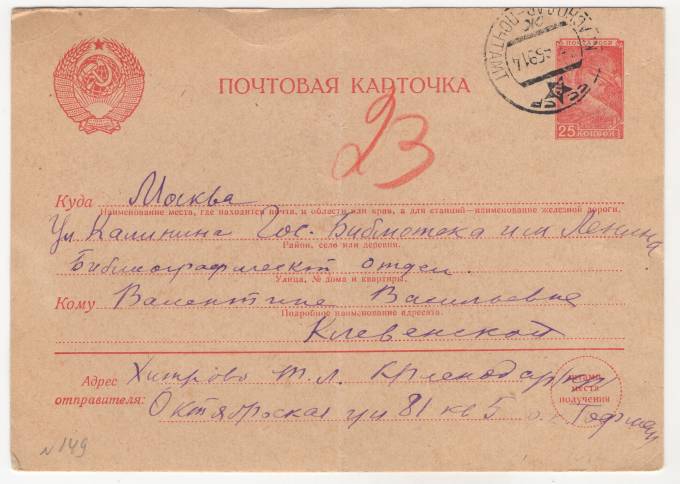 ПОЧТА СССР
25 КОПЕЕК
ПОЧТОВАЯ КАРТОЧКА
23
Куда Москва
Наименование места, где находится почта, и области или края, а для станций—наименование железной дороги.
Ул Калинина Гос. Библиотека им Ленина
Район, село или деревня.
Библиографический отдел.
Улица, № дома и квартиры.
Кому Валентине Васильевне
Подробное наименование адресата.
Клевенской
Адрес отправителя:
Хитрово Краснодар
Октябрьская ул 81 кв 5
места
получения
N 149